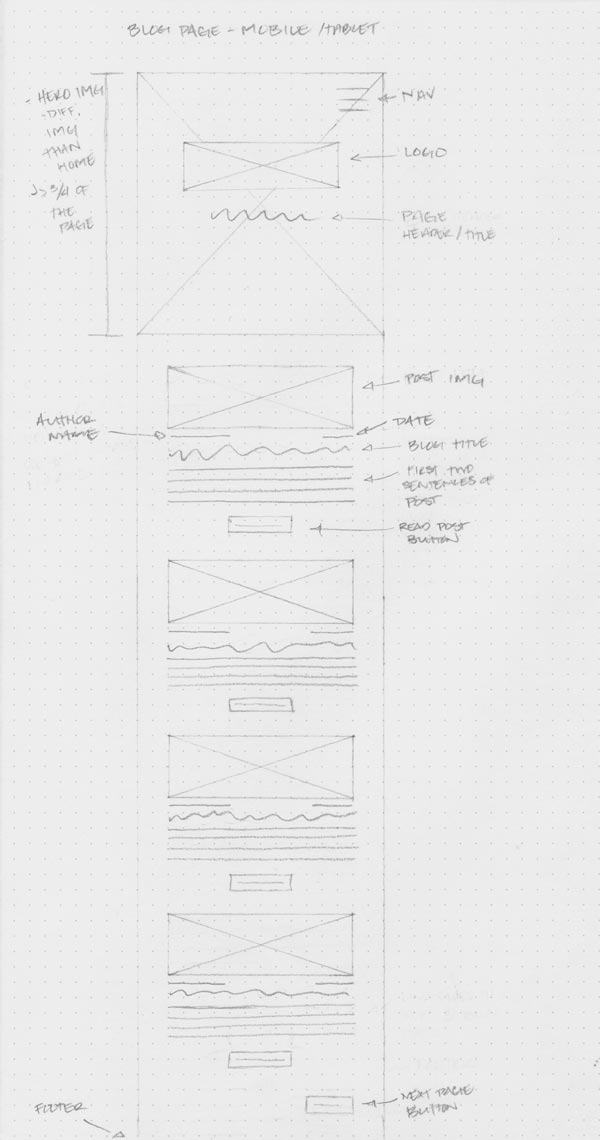 BLOG PAGE - MOBILE / TABLET
- HERO IMG
- DIFF.
IMG
THAN
HOME
3/4 OF
THE
PAGE
NAV
LOGO
PAGE
HEADER / TITLE
POST IMG
AUTHOR
NAME
DATE
BLOG TITLE
FIRST TWO
SENTENCES OF
POST
READ POST
BUTTON
NEXT PAGE
BUTTON
FOOTER